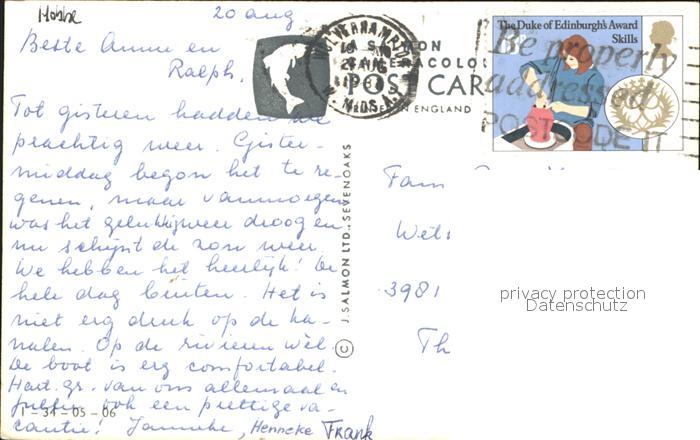 Mobbe
20 aug
Beste Anne en
Ralph,
Tot gisteren hadden we
prachtig weer. Gister-
middag begon het te re-
genen, maar vanmorgen
was het gelukkig weer droog en
nu schijnt de zon weer.
We hebben het heerlijk! De
hele dag buiten. Het is
niet erg druk op de ka-
nalen. Op de rivieren wel.
De boot is erg comfortabel.
Hart. gr. van ons allemaal en
ook een prettige va-
cantie! Janneke, Henneke Frank
1-34-05-06
© J. SALMON LTD., SEVENOAKS
WOLVERHAMPTON
MIDS
A SALMON
CAMERACOLOUR
POST CARD
ENGLAND
The Duke of Edinburgh's Award
Skills
Be properly
addressed
POSTCODE IT
Fam
Wel
3981
Th
privacy protection
Datenschutz